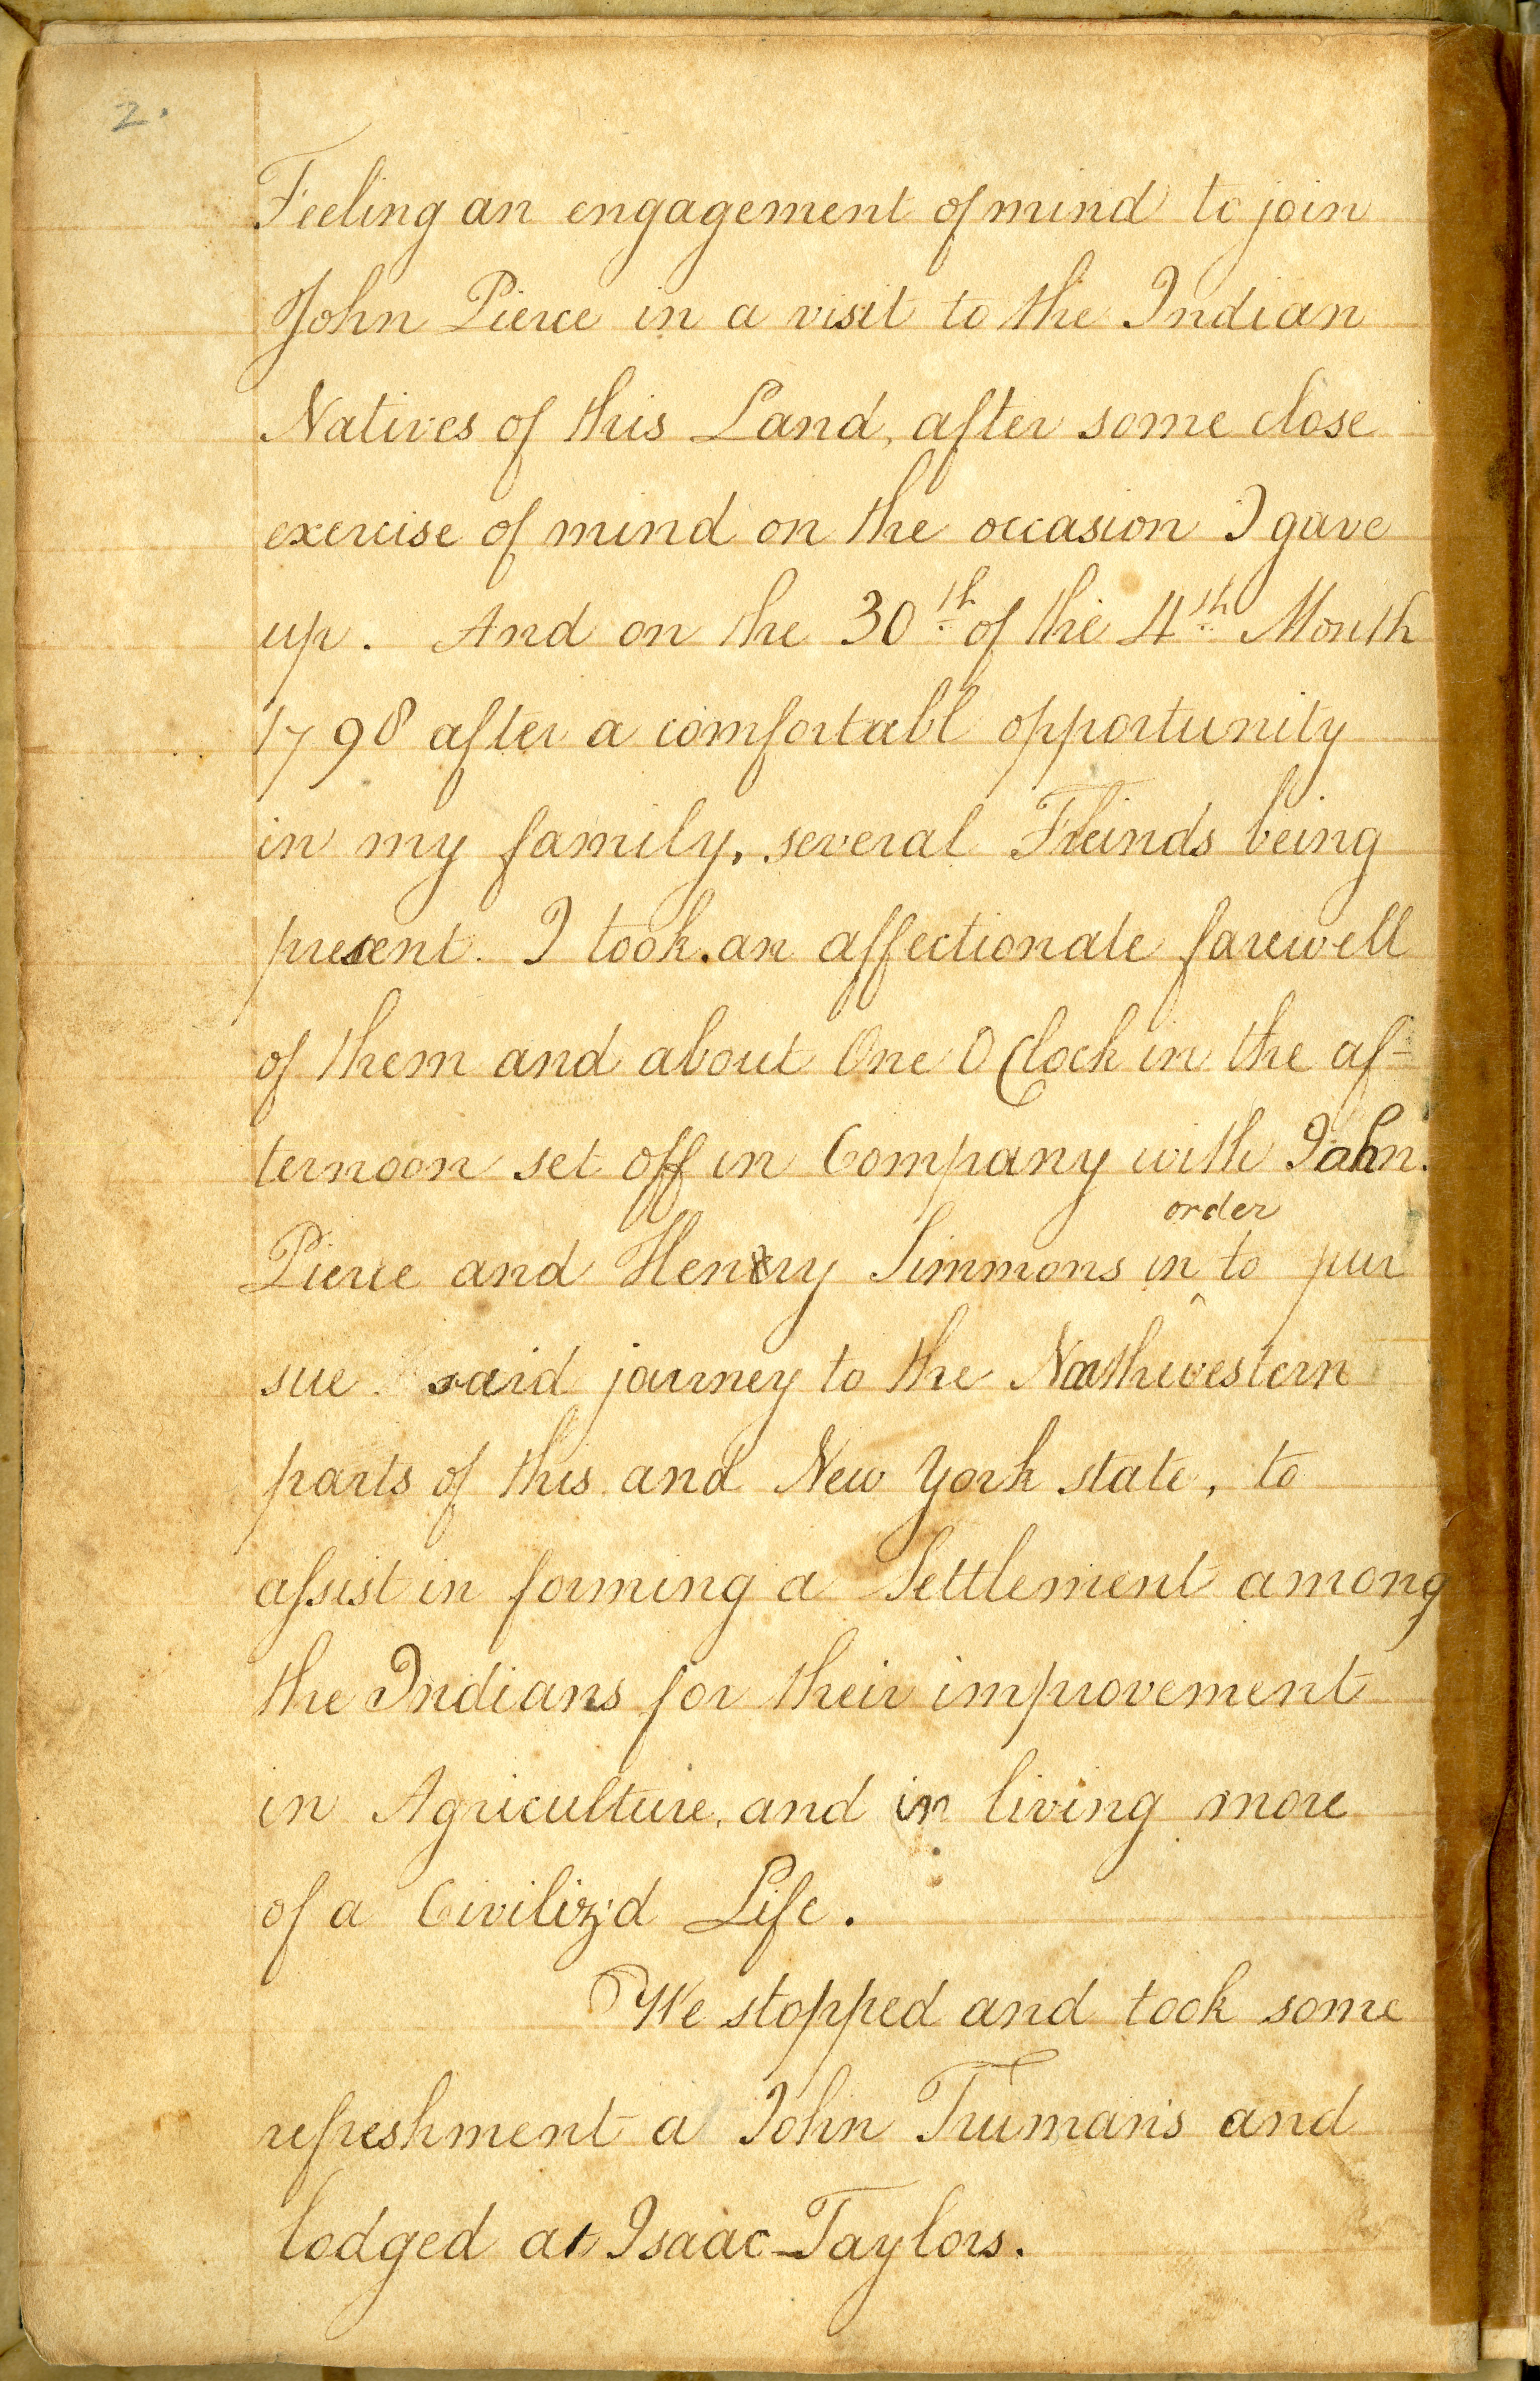 2.
Feeling an engagement of mind to join
John Pierce in a visit to the Indian
Natives of this Land, after some close
exercise of mind on the occasion I gave
up. And on the 30th of the 4th Month
1798 after a comfortabl opportunity
in my family, several Freinds being
present. I took an affectionate farewell
of them and about One O Clock in the af-
ternoon set off in Company with John
order
Pierce and Henry Simmons in ^ to pur
sue said journey to the Northwestern
parts of this and New York state, to
aſsist in forming a Settlement among
the Indians for their improvement
in Agriculture, and in living more
of a Civiliz'd Life.
We stopped and took some
refreshment a John Truman's and
lodged at Isaac Taylors.